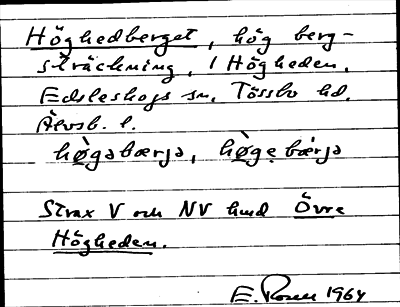 Höghedberget, hög berg-
sträckning, i Högheden.
Edsleskogs sn, Tössbo hd.
Älvsb. l.
hø̀gəbærjə, hø̀gebærjə
Strax V och NV hmd Övre
Högheden.
E. Rosen 1964